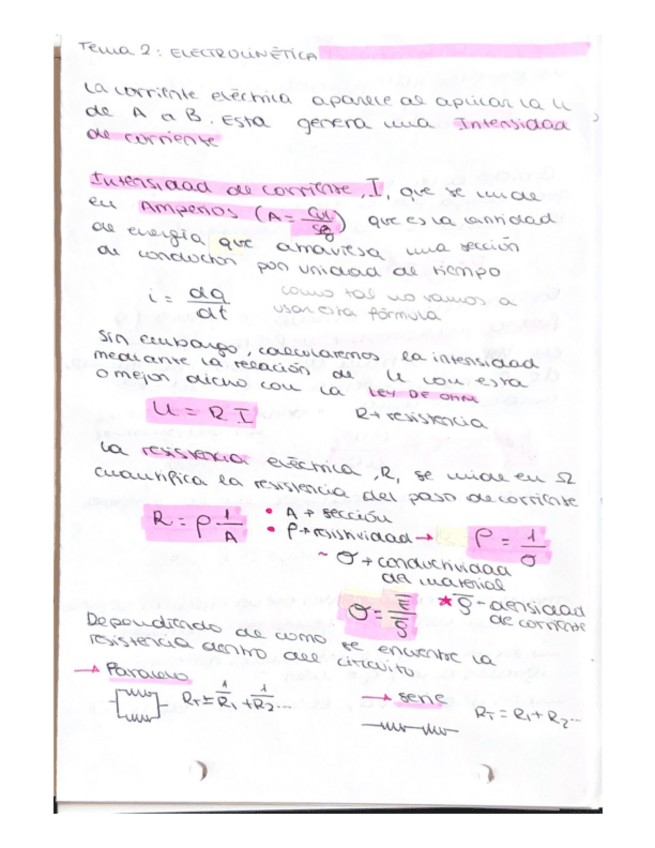 Tema 2: ELECTROCINÉTICA
La corriente eléctrica aparece al aplicar la U
de A a B. Esta genera una Intensidad
de corriente
Intensidad de corriente, I, que se mide
en Amperios (A = Cul/sg) que es la cantidad
de energía que atraviesa una sección
de conductor por unidad de tiempo
i = dq/dt como tal no vamos a
usar esta fórmula
Sin embargo, calcularemos la intensidad
mediante la relación de U con esta
o mejor dicho con la LEY DE OHM
U = R I R→ resistencia
La resistencia eléctrica, R, se mide en Ω
cuantifica la resistencia del paso de corriente
R = ρ 1/A • A → sección
• ρ → resistividad → ρ = 1/σ
~ σ → conductividad
del material
★ - densidad
de corriente
Dependiendo de como se encuentre la
resistencia dentro del circuito
→ Paralelo → serie
RT = 1/R1 + 1/R2 ... RT = R1 + R2 ...